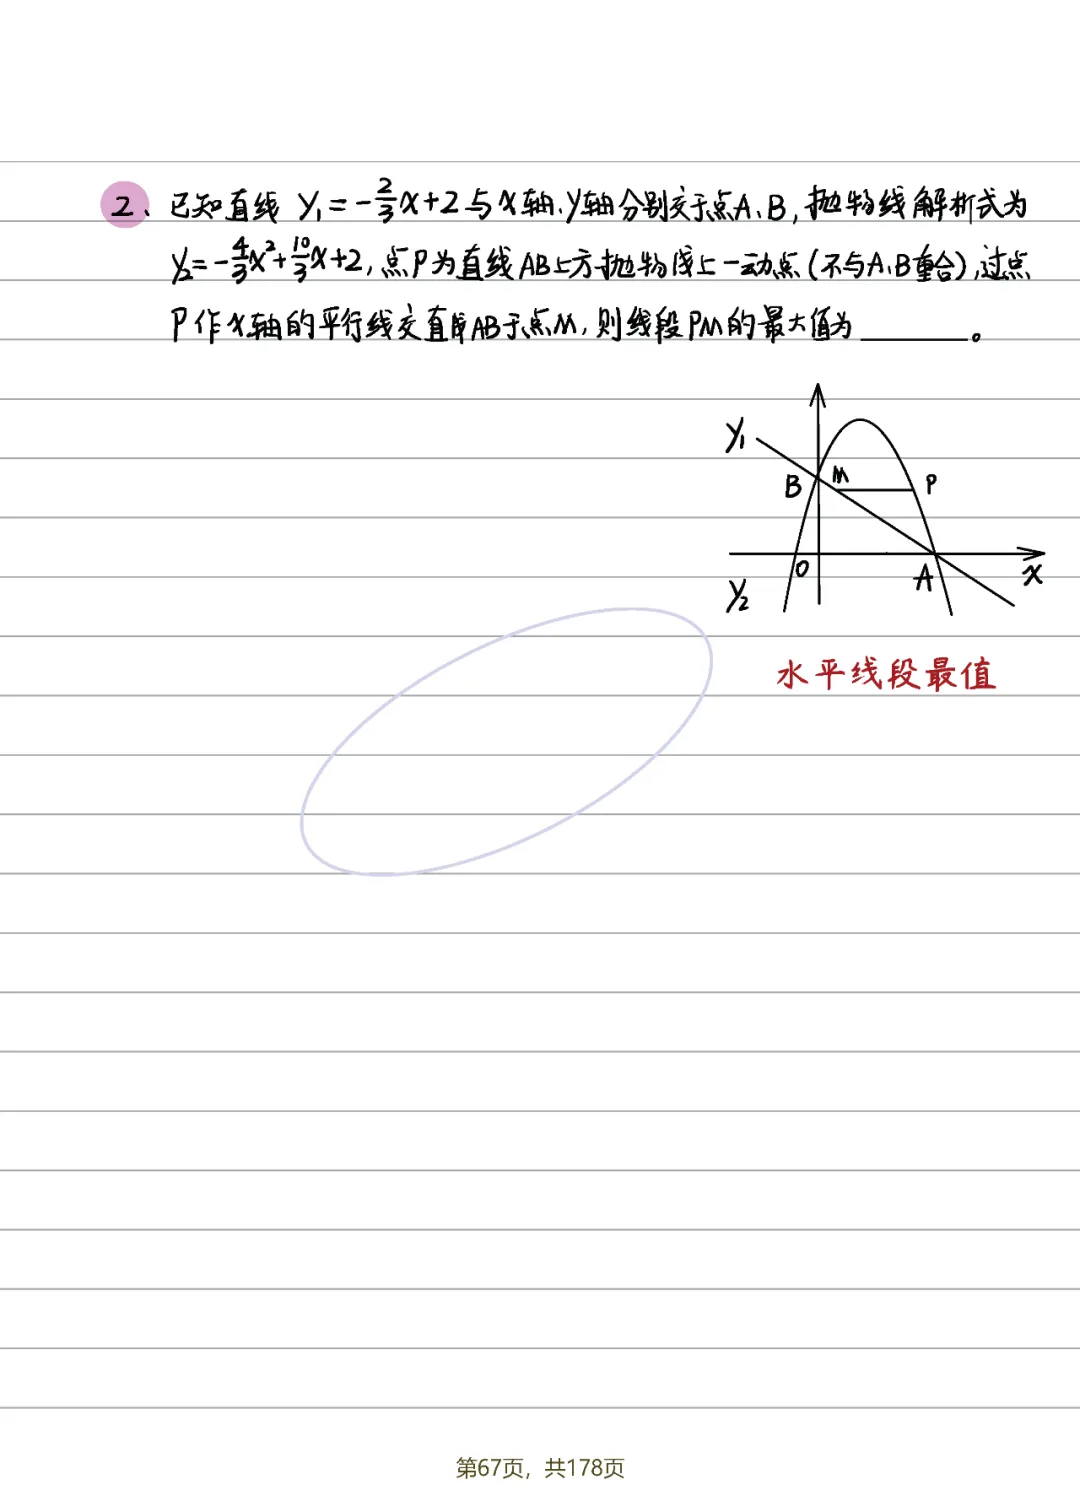 2、已知直线 y₁=-2/3x+2与x轴、y轴分别交于点A、B,抛物线解析式为
y₂=-4/3x²+10/3x+2,点P为直线AB上方抛物线上一动点(不与A、B重合),过点
P作x轴的平行线交直线AB于点M,则线段PM的最大值为______。
y₁
B
M
P
O
A
x
y₂
水平线段最值
第67页，共178页